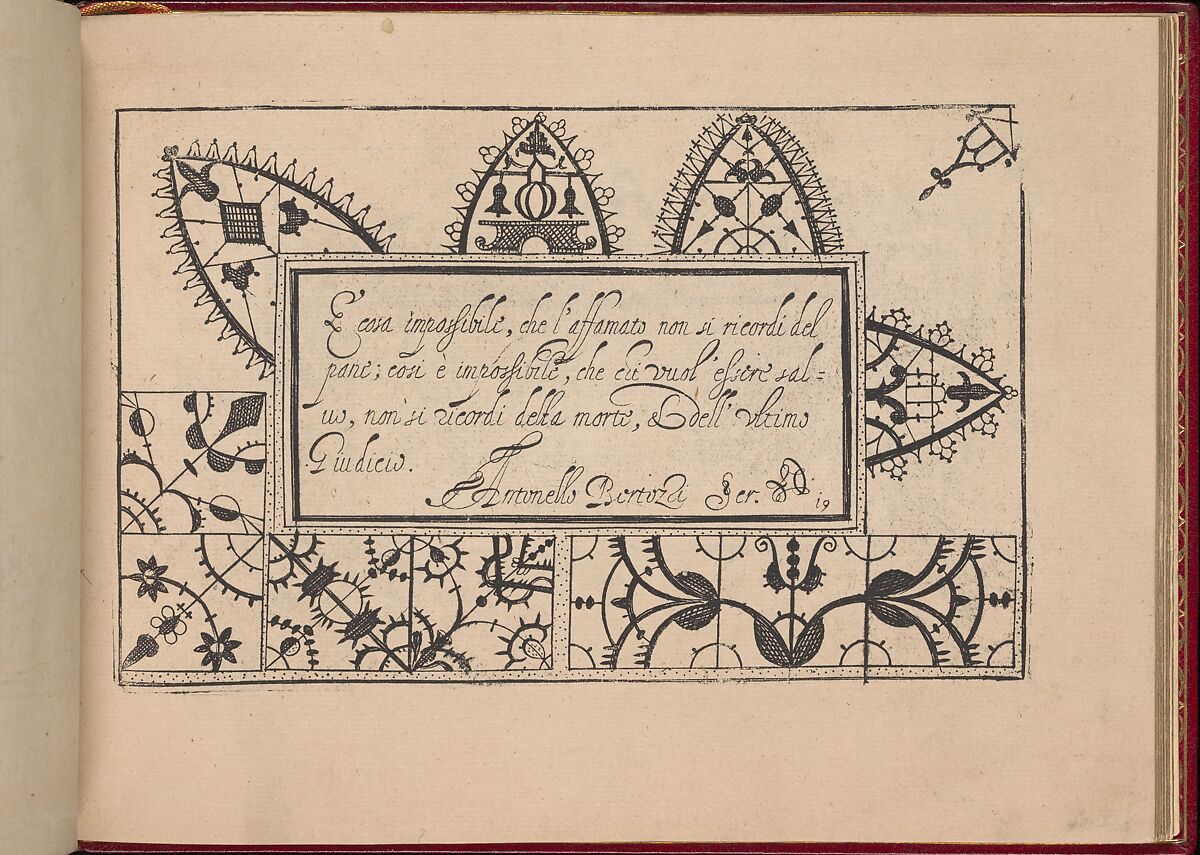 È cosa impossibile, che l'affamato non si ricordi del
pane; così è impossibile, che chi vuol' essere sal=
uo, non si ricordi della morte, & dell' vltimo
Giudicio.
Antonello Bertozzi Scr.
19